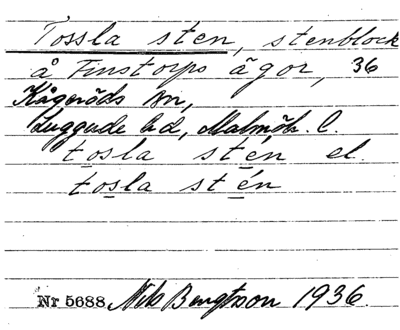 Tossla sten, stenblock
å Finstorps ägor, 36
Kågeröds sn,
Luggude hd, Malmöh. l.
tosla stén el.
tosla stén
Nr 5688 Nils Bengtsson 1936.